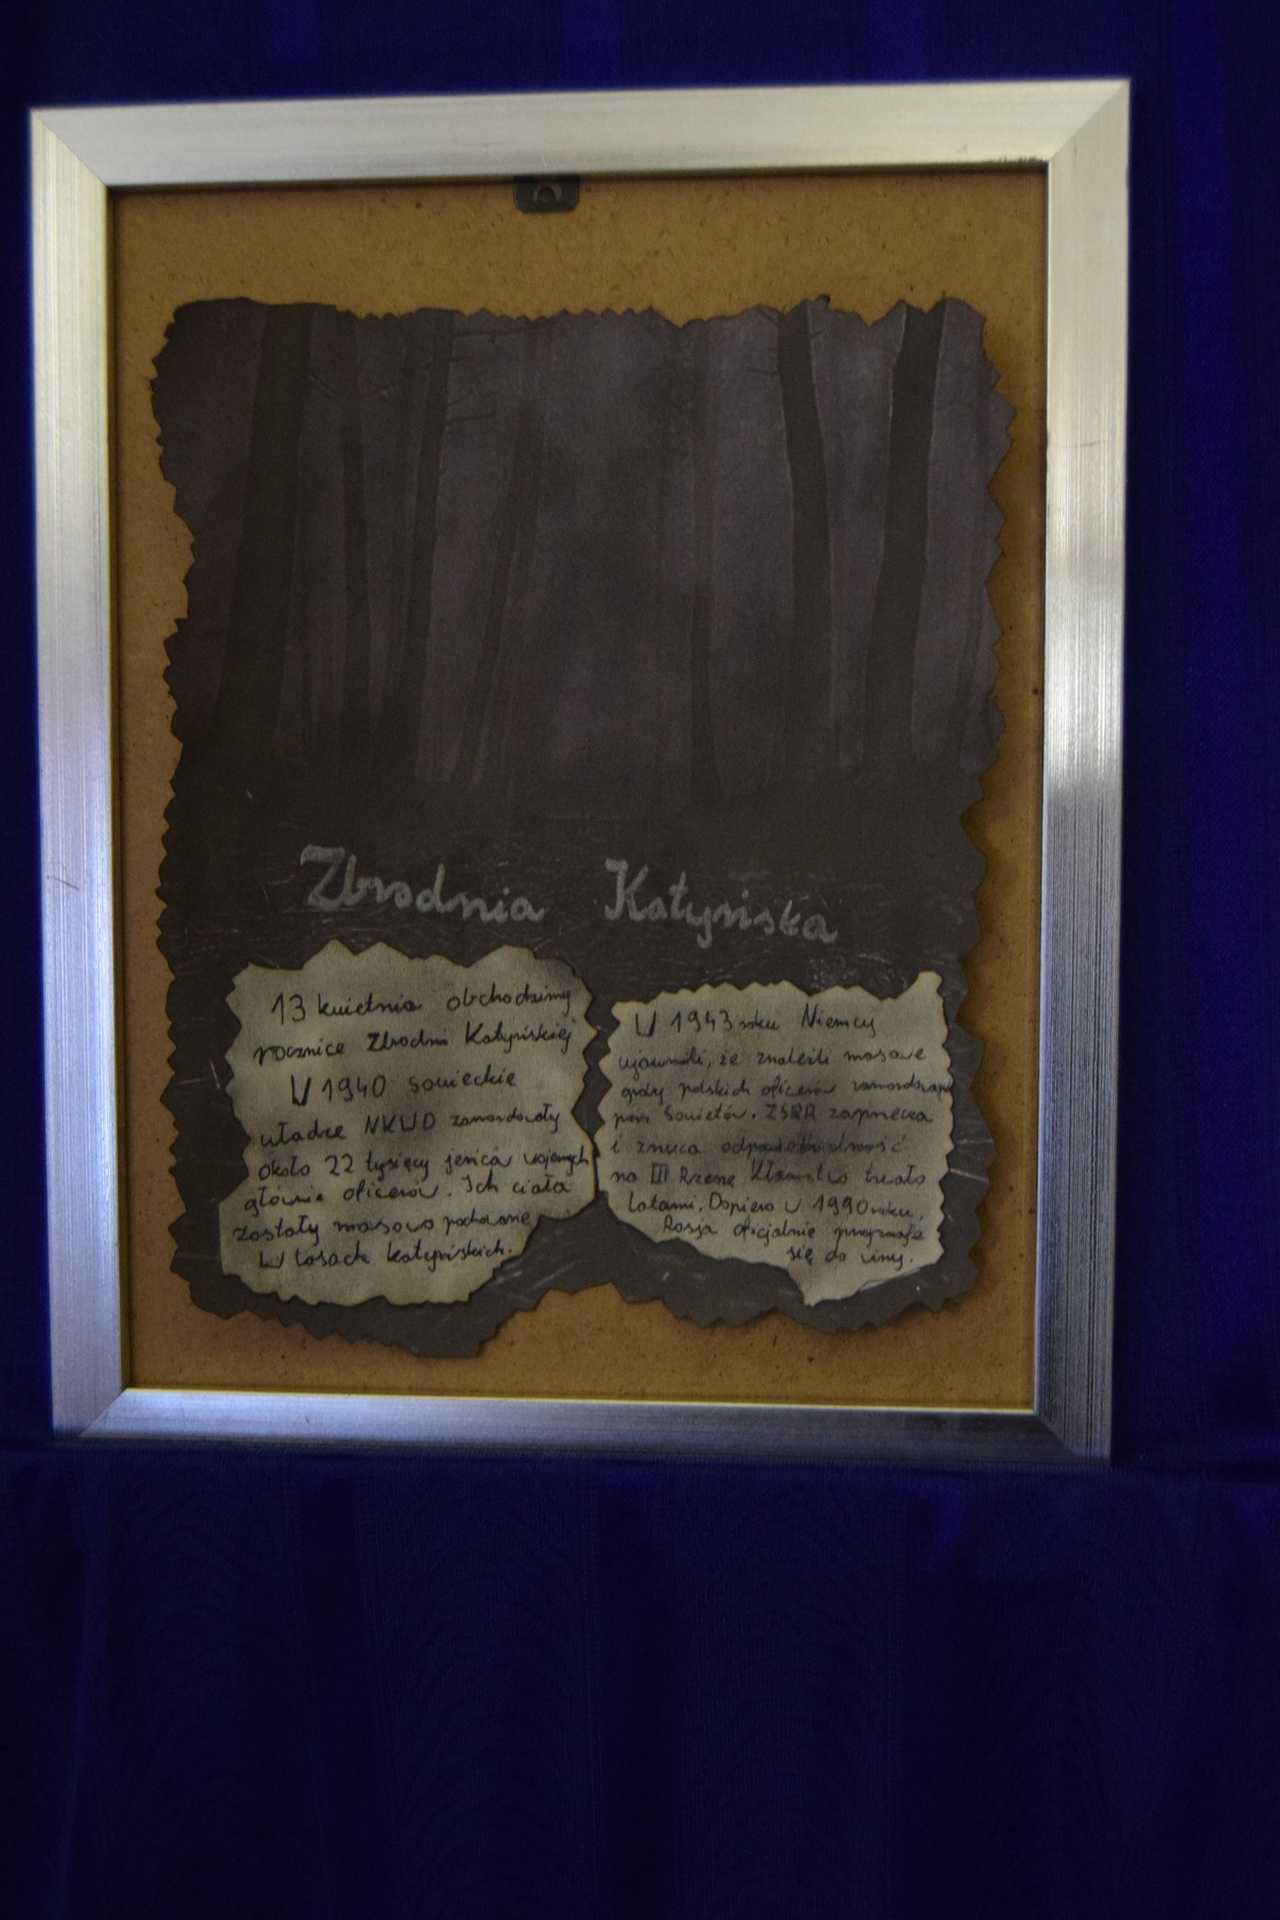 Zbrodnia Katyńska
13 kwietnia obchodzimy
rocznice Zbrodni Katyńskiej
W 1940 sowieckie
władze NKWD zamordowały
około 22 tysięcy jeńców wojennych
głównie oficerów. Ich ciała
zostały masowo pochowane
w lasach katyńskich.
W 1943 roku Niemcy
ujawnili, że znaleźli masowe
groby polskich oficerów zamordowanych
przez Sowietów. ZSRR zaprzecza
i zrzuca odpowiedzialność
na III Rzeszę Kłamstwo trwało
latami. Dopiero w 1990 roku,
Rosja oficjalnie przyznaje
się do winy.